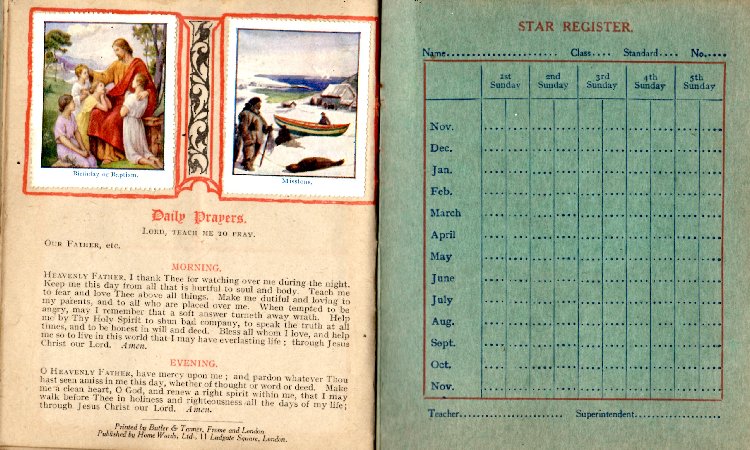 Birthday or Baptism.
Missions.
Daily Prayers.
LORD, TEACH ME TO PRAY.
OUR FATHER, etc.
MORNING.
HEAVENLY FATHER, I thank Thee for watching over me during the night.
Keep me this day from all that is hurtful to soul and body. Teach me
to fear and love Thee above all things. Make me dutiful and loving to
my parents, and to all who are placed over me. When tempted to be
angry, may I remember that a soft answer turneth away wrath. Help
me by Thy Holy Spirit to shun bad company, to speak the truth at all
times, and to be honest in will and deed. Bless all whom I love, and help
me so to live in this world that I may have everlasting life; through Jesus
Christ our Lord. Amen.
EVENING.
O HEAVENLY FATHER, have mercy upon me; and pardon whatever Thou
hast seen amiss in me this day, whether of thought or word or deed. Make
me a clean heart, O God, and renew a right spirit within me, that I may
walk before Thee in holiness and righteousness all the days of my life;
through Jesus Christ our Lord. Amen.
Printed by Butler & Tanner, Frome and London
Published by Home Words, Ltd., 11 Ludgate Square, London.
STAR REGISTER.
Name........................ Class.... Standard.... No.....
1st Sunday 2nd Sunday 3rd Sunday 4th Sunday 5th Sunday
Nov.
Dec.
Jan.
Feb.
March
April
May
June
July
Aug.
Sept.
Oct.
Nov.
Teacher........................ Superintendent....................